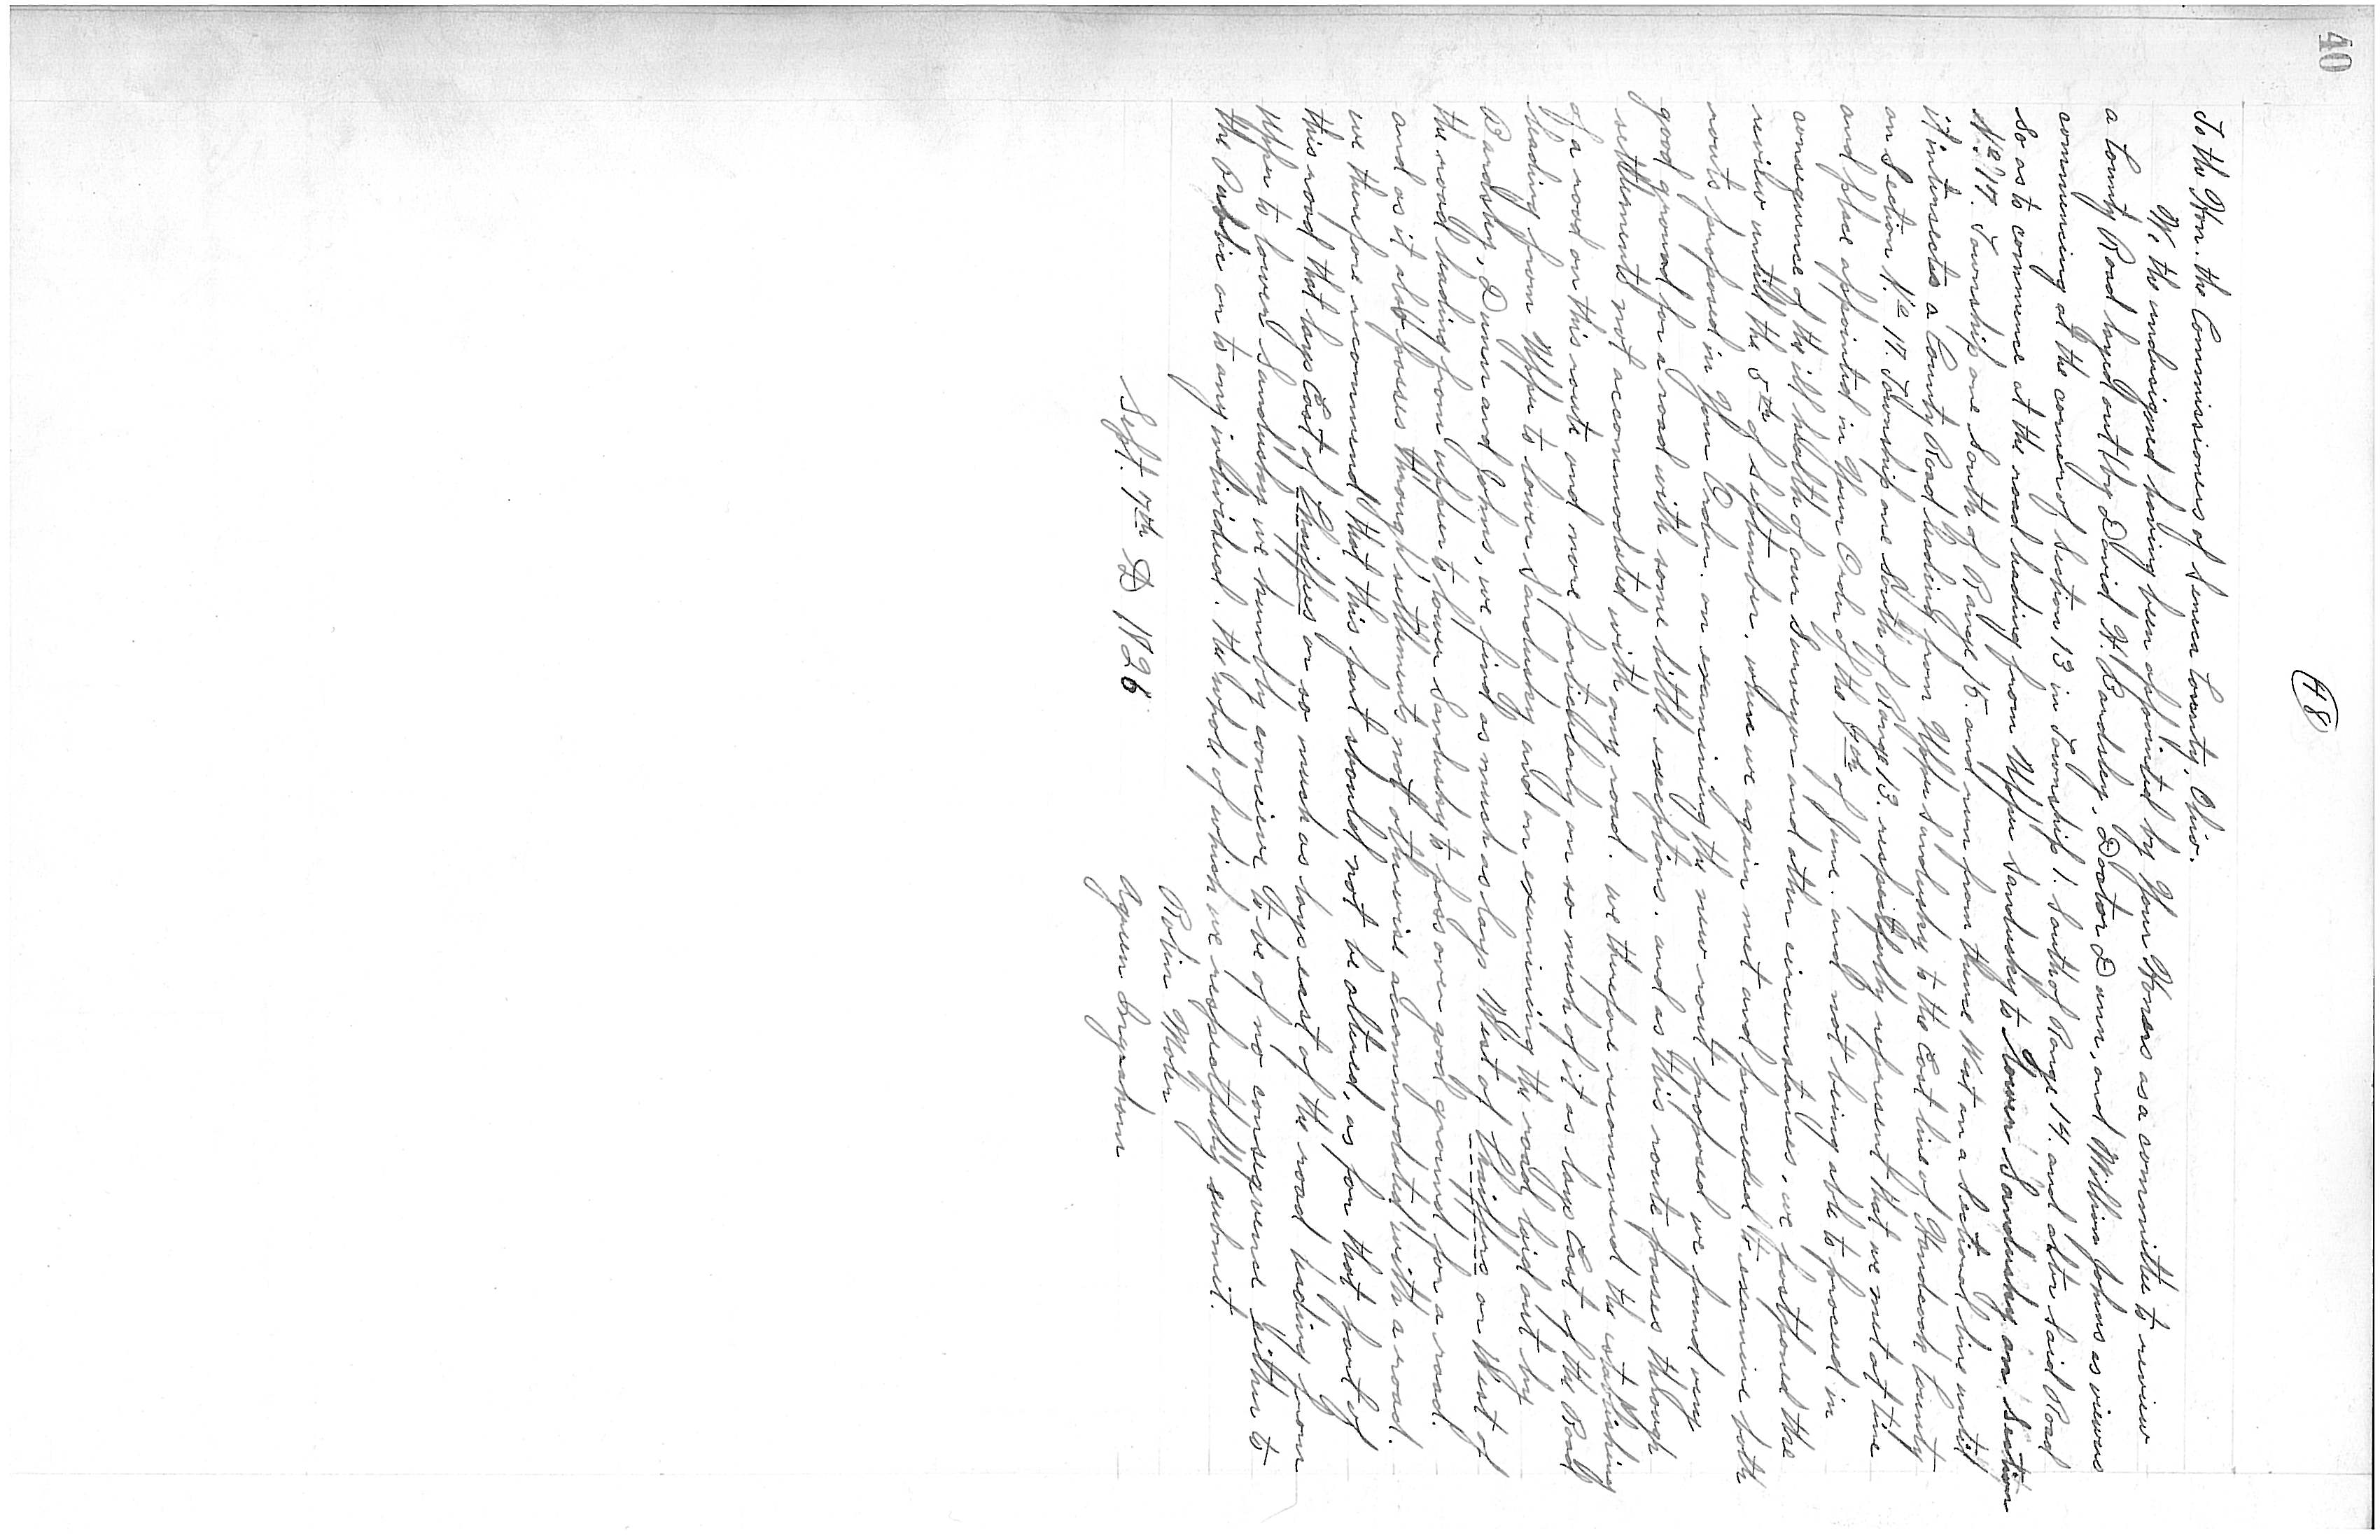 40
48
To the Hon. the Commissioners of Seneca County, Ohio.
We the undersigned having been appointed by Your Honors as a committee to review
a County Road layed out by David H. Bardsley, Doctor Dunn, and William Johns as viewers
commencing at the corner of Section 13 in Township 1. South of Range 14. and alter said Road
So as to commence at the road leading from Upper Sandusky to Lower Sandusky on section
No. 17. Township one South of Range 15. and run from thence West on a Sectional line until
it intersects a County Road leading from Upper Sandusky to the East line of Handcock County
on Section No 17. Township one South of Range 13. respectfully represent that we met at time
and place appointed in Your Order of the 6th of June. and not being able to proceed in
consequence of the ill health of our Surveyor and other circumstances, we postponed the
review until the 5th of September. where we again met and proceeded to examine both
routs proposed in Your Order. on examining the new rout proposed we found very
good ground for a road with some little exceptions. and as this route passes through
settlements not accommodated with any road. we therefore recommend the establishing
of a road on this route and more particularly on so much of it as lays East of the Road
leading from Upper to lower Sandusky and on examining the road laid out by
Bardsley, Dunn and Johns, we find as much as lays West of or West of
the road leading from upper to lower Sandusky to pass over good ground for a road.
and as it also passes through settlements not otherwise accommodated with a road.
we therefore recommend that this part should not be altered, as for that part of
this road that lays East of or so much as lays east of the road leading from
Upper to lower Sandusky we humbly conceive to be of no consequence either to
the Public or to any individual. the whole of which we respectfully submit.
Robin
Aguen Ingraham
Sept. 7th D 1826